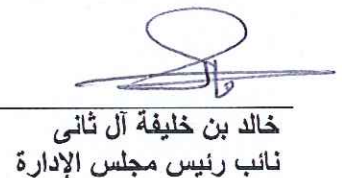 خالد بن خليفة آل ثانى
نائب رئيس مجلس الإدارة